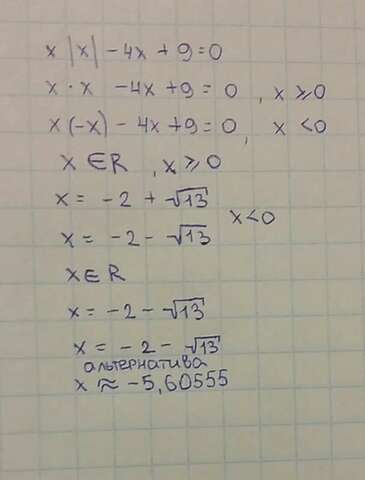 x |x| - 4x + 9 = 0
x · x - 4x + 9 = 0 , x ⩾ 0
x(-x) - 4x + 9 = 0, x < 0
x ∈ R , x ⩾ 0
x = -2 + √13
x < 0
x = -2 - √13
x ∈ R
x = -2 - √13
x = -2 - √13
альтернатива
x ≈ -5,60555